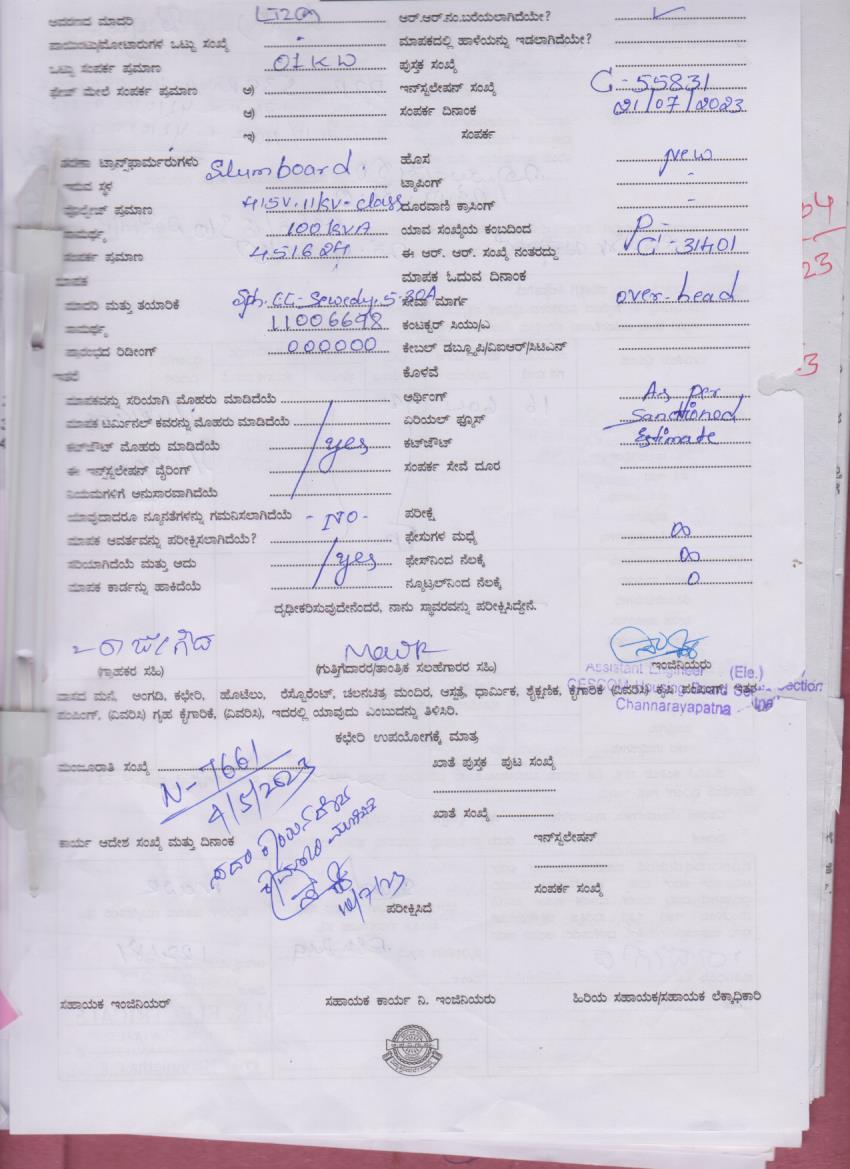 ಆವರಣದ ಮಾದರಿ LT2(a) ಆರ್.ಆರ್.ನಂ.ಬರೆಯಲಾಗಿದೆಯೇ? ✓
ಪಾಯಿಂಟ್ಸು/ಮೋಟಾರುಗಳ ಒಟ್ಟು ಸಂಖ್ಯೆ - ಮಾಪಕದಲ್ಲಿ ಹಾಳೆಯನ್ನು ಇಡಲಾಗಿದೆಯೇ?
ಒಟ್ಟು ಸಂಪರ್ಕ ಪ್ರಮಾಣ 01KW ಪುಸ್ತಕ ಸಂಖ್ಯೆ
ಫೇಜ್ ಮೇಲೆ ಸಂಪರ್ಕ ಪ್ರಮಾಣ ಅ) ಇನ್‌ಸ್ಟಲೇಷನ್ ಸಂಖ್ಯೆ C-55831
ಆ) ಸಂಪರ್ಕ ದಿನಾಂಕ 21/07/2023
ಇ) ಸಂಪರ್ಕ
ಟ್ರಾನ್ಸ್‌ಫಾರ್ಮರುಗಳು Slumboard. ಹೊಸ New
ಇರುವ ಸ್ಥಳ ಟ್ಯಾಪಿಂಗ್ -
ವೋಲ್ಟೇಜ್ ಪ್ರಮಾಣ 415V.11KV-class ದೂರವಾಣಿ ಕ್ರಾಸಿಂಗ್ -
ಸಾಮರ್ಥ್ಯ 100KVA ಯಾವ ಸಂಖ್ಯೆಯ ಕಂಬದಿಂದ P-
ಸಂಪರ್ಕ ಪ್ರಮಾಣ ಈ ಆರ್. ಆರ್. ಸಂಖ್ಯೆ ನಂತರದ್ದು C-31401
ಮಾಪಕ ಮಾಪಕ ಓದುವ ದಿನಾಂಕ
ಮಾದರಿ ಮತ್ತು ತಯಾರಿಕೆ 5-30A ಸೇವಾ ಮಾರ್ಗ over-head
ಸಾಮರ್ಥ್ಯ 11006698 ಕಂಟಕ್ಟರ್ ಸಿಯು/ಎ
ಪ್ರಾರಂಭದ ರಿಡೀಂಗ್ 000000 ಕೇಬಲ್ ಡಬ್ಲ್ಯೂಪಿ/ವಿಐಆರ್/ಸಿಟಿಎನ್
ಇತರೆ ಕೊಳವೆ
ಮಾಪಕವನ್ನು ಸರಿಯಾಗಿ ಮೊಹರು ಮಾಡಿದೆಯೆ ಅರ್ಥಿಂಗ್ As per
ಮಾಪಕ ಟರ್ಮಿನಲ್ ಕವರನ್ನು ಮೊಹರು ಮಾಡಿದೆಯೆ ಏರಿಯಲ್ ಫ್ಯೂಸ್ Sanctioned
ಕಟ್‌ಔಟ್ ಮೊಹರು ಮಾಡಿದೆಯೆ yes ಕಟ್‌ಔಟ್ Estimate
ಈ ಇನ್‌ಸ್ಟಲೇಷನ್ ವೈರಿಂಗ್ ಸಂಪರ್ಕ ಸೇವೆ ದೂರ
ನಿಯಮಗಳಿಗೆ ಅನುಸಾರವಾಗಿದೆಯೆ
ಯಾವುದಾದರೂ ನ್ಯೂನತೆಗಳನ್ನು ಗಮನಿಸಲಾಗಿದೆಯೆ -NO- ಪರೀಕ್ಷೆ
ಮಾಪಕ ಆವರ್ತವನ್ನು ಪರೀಕ್ಷಿಸಲಾಗಿದೆಯೆ? ಫೇಸುಗಳ ಮಧ್ಯೆ ∞
ಸರಿಯಾಗಿದೆಯೆ ಮತ್ತು ಆದು yes ಫೇಸ್‌ನಿಂದ ನೆಲಕ್ಕೆ ∞
ಮಾಪಕ ಕಾರ್ಡನ್ನು ಹಾಕಿದೆಯೆ ನ್ಯೂಟ್ರಲ್‌ನಿಂದ ನೆಲಕ್ಕೆ 0
ದೃಢೀಕರಿಸುವುದೇನೆಂದರೆ, ನಾನು ಸ್ಥಾವರವನ್ನು ಪರೀಕ್ಷಿಸಿದ್ದೇನೆ.
(ಗ್ರಾಹಕರ ಸಹಿ) (ಗುತ್ತಿಗೆದಾರರ/ತಾಂತ್ರಿಕ ಸಲಹೆಗಾರರ ಸಹಿ) ಇಂಜಿನಿಯರು
Assistant Engineer (Ele.)
ವಾಸದ ಮನೆ, ಅಂಗಡಿ, ಕಛೇರಿ, ಹೊಟೆಲು, ರೆಸ್ಟೊರೆಂಟ್, ಚಲನಚಿತ್ರ ಮಂದಿರ, ಆಸ್ಪತ್ರೆ, ಧಾರ್ಮಿಕ, ಶೈಕ್ಷಣಿಕ, ಕೈಗಾರಿಕೆ (ವಿವರಿಸಿ) ಕೃಷಿ ಪಂಪಿಂಗ್, ಇತರ
ಪಂಪಿಂಗ್, (ವಿವರಿಸಿ) ಗೃಹ ಕೈಗಾರಿಕೆ, (ವಿವರಿಸಿ), ಇದರಲ್ಲಿ ಯಾವುದು ಎಂಬುದನ್ನು ತಿಳಿಸಿರಿ.
Channarayapatna
ಕಛೇರಿ ಉಪಯೋಗಕ್ಕೆ ಮಾತ್ರ
ಮಂಜೂರಾತಿ ಸಂಖ್ಯೆ N-7661 ಖಾತೆ ಪುಸ್ತಕ ಪುಟ ಸಂಖ್ಯೆ
4/5/2023
ಖಾತೆ ಸಂಖ್ಯೆ
ಕಾರ್ಯ ಆದೇಶ ಸಂಖ್ಯೆ ಮತ್ತು ದಿನಾಂಕ ಇನ್‌ಸ್ಟಲೇಷನ್
ಸಂಪರ್ಕ ಸಂಖ್ಯೆ
ಪರೀಕ್ಷಿಸಿದೆ
ಸಹಾಯಕ ಇಂಜಿನಿಯರ್ ಸಹಾಯಕ ಕಾರ್ಯ ನಿ. ಇಂಜಿನಿಯರು ಹಿರಿಯ ಸಹಾಯಕ/ಸಹಾಯಕ ಲೆಕ್ಕಾಧಿಕಾರಿ